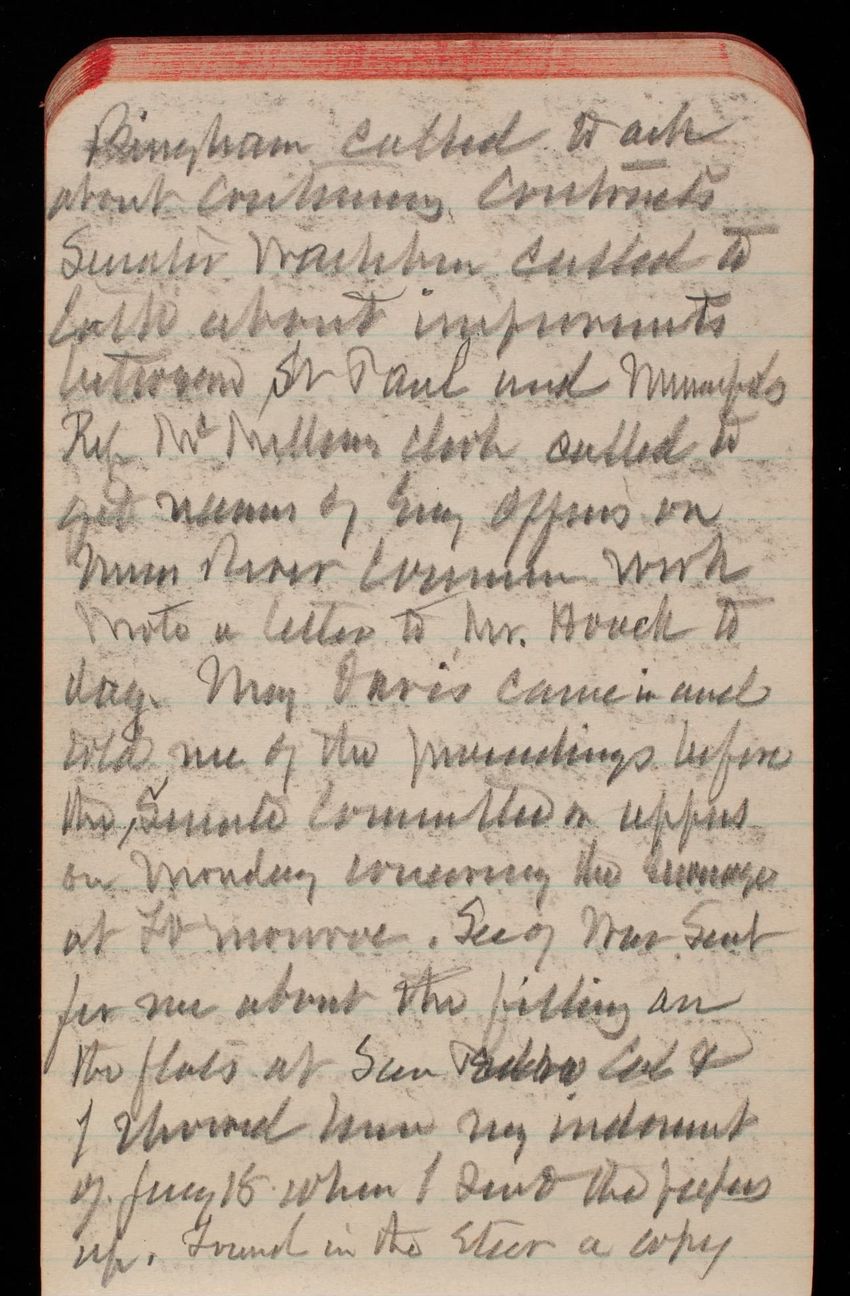 Bingham called to ask
about continuing contracts
Senator Washburn called to
talk about improvments
between St Paul and Minneapolis
Rep McMillans clerk called to
get names of Eng Officers on
Miss River Commission work
Wrote a letter to Mr. Houck to
day. Maj Davis came in and
told me of the proceedings before
the Senate Committee on apprs
on Monday concerning the sewage
at Ft Monroe. Sec of War Sent
for me about the filling on
the flats at San Pedro Cal &
I showed him my indorsment
of Jany 15 when I sent the papers
up. Found in the Star a copy